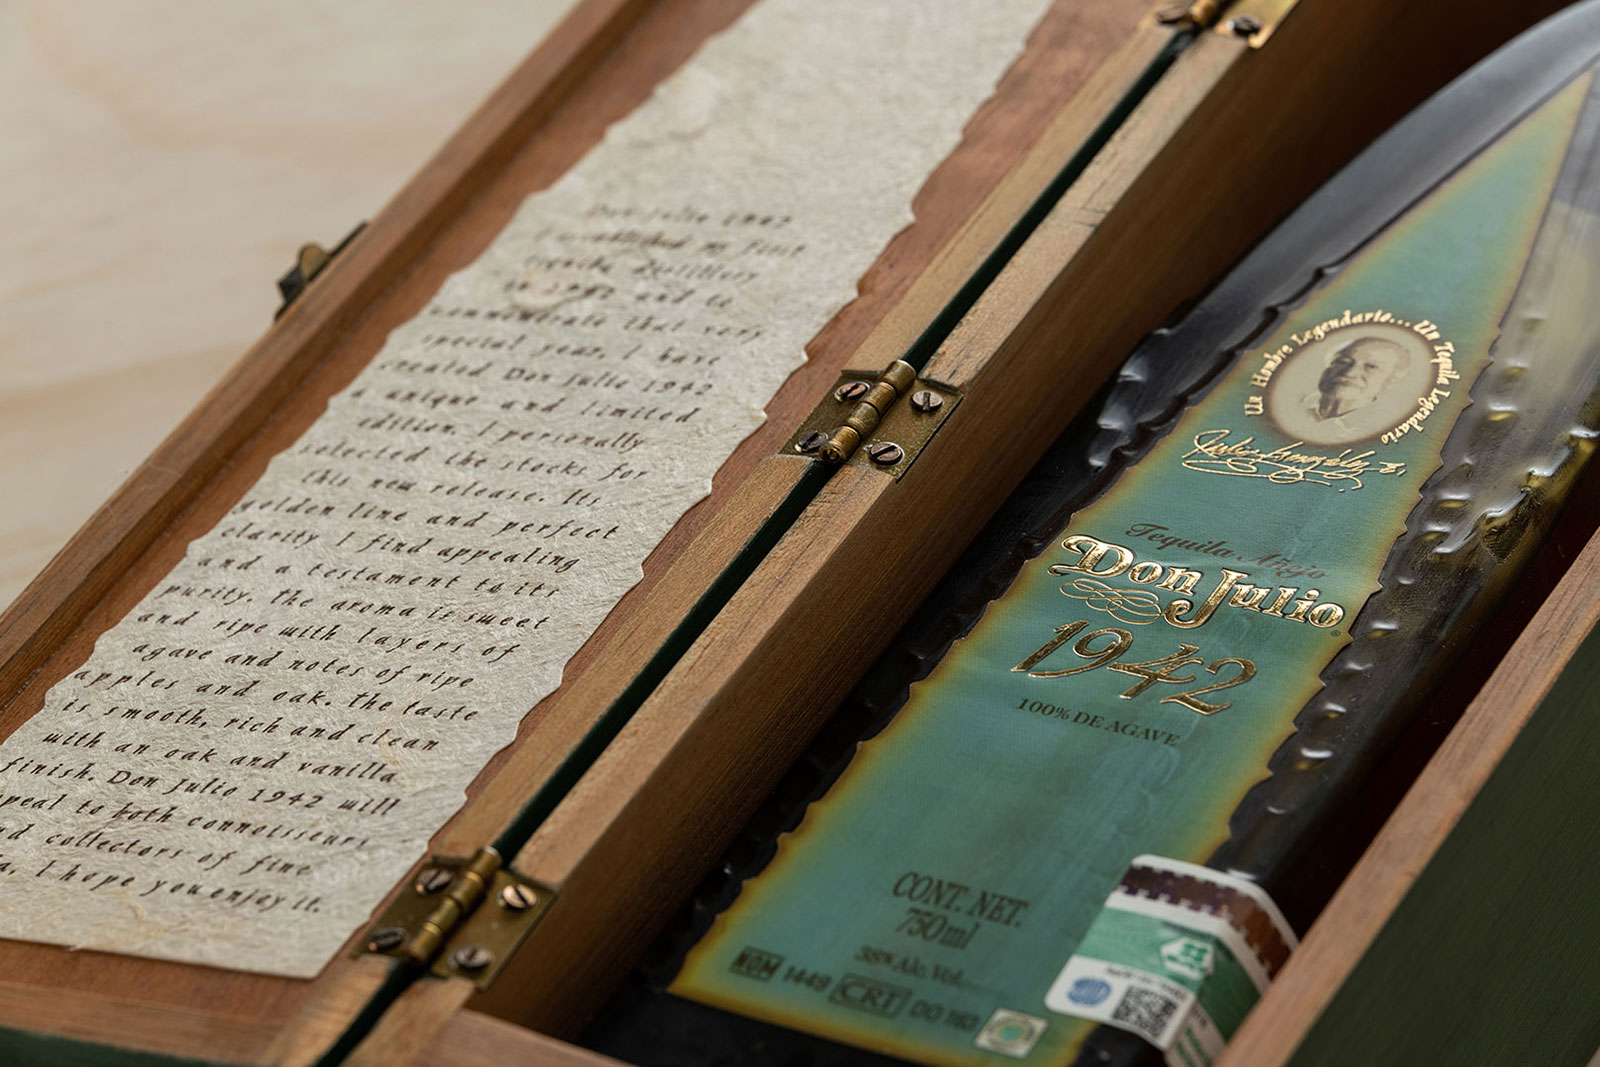 Don Julio 1942
I established my first
tequila distillery
in 1942 and to
commemorate that very
special year, I have
created Don Julio 1942
a unique and limited
edition. I personally
selected the stocks for
this new release. Its
golden line and perfect
clarity I find appealing
and a testament to its
purity. The aroma is sweet
and ripe with layers of
agave and notes of ripe
apples and oak. The taste
is smooth, rich and clean
with an oak and vanilla
finish. Don Julio 1942 will
to both connoisseurs
collectors of fine
I hope you enjoy it.
Un Hombre Legendario... Un Tequila Legendario
Julio González E.
Tequila Añejo
Don Julio
1942
100% DE AGAVE
CONT. NET.
750ml
38% Alc. Vol.
NOM 1449 CRT DO 163